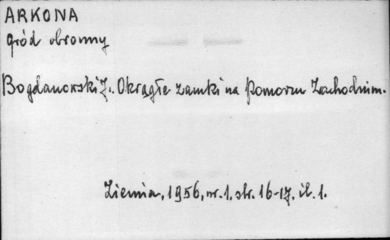 ARKONA
gród obronny
Bogdanowski Z. Okrągłe zamki na Pomorzu Zachodnim.
Ziemia, 1956, nr. 1. str. 16-17. il. 1.